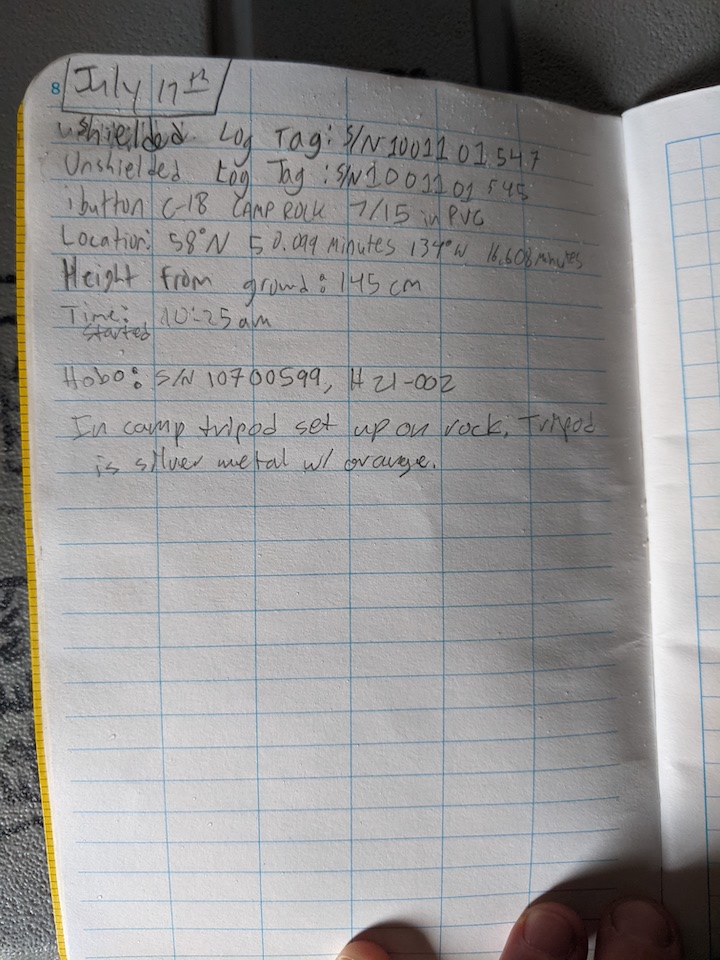 8
July 17th
Shielded Log Tag: S/N 1001101547
Unshielded Log Tag: S/N 1001101545
ibutton C-18 CAMP ROCK 7/15 in PVC
Location: 58°N 50.099 Minutes 134°W 16.608 minutes
Height from ground: 145 cm
Time: 10:25 am
Started
Hobo: S/N 10700599, H21-002
In camp tripod set up on rock. Tripod
is silver metal w/ orange.